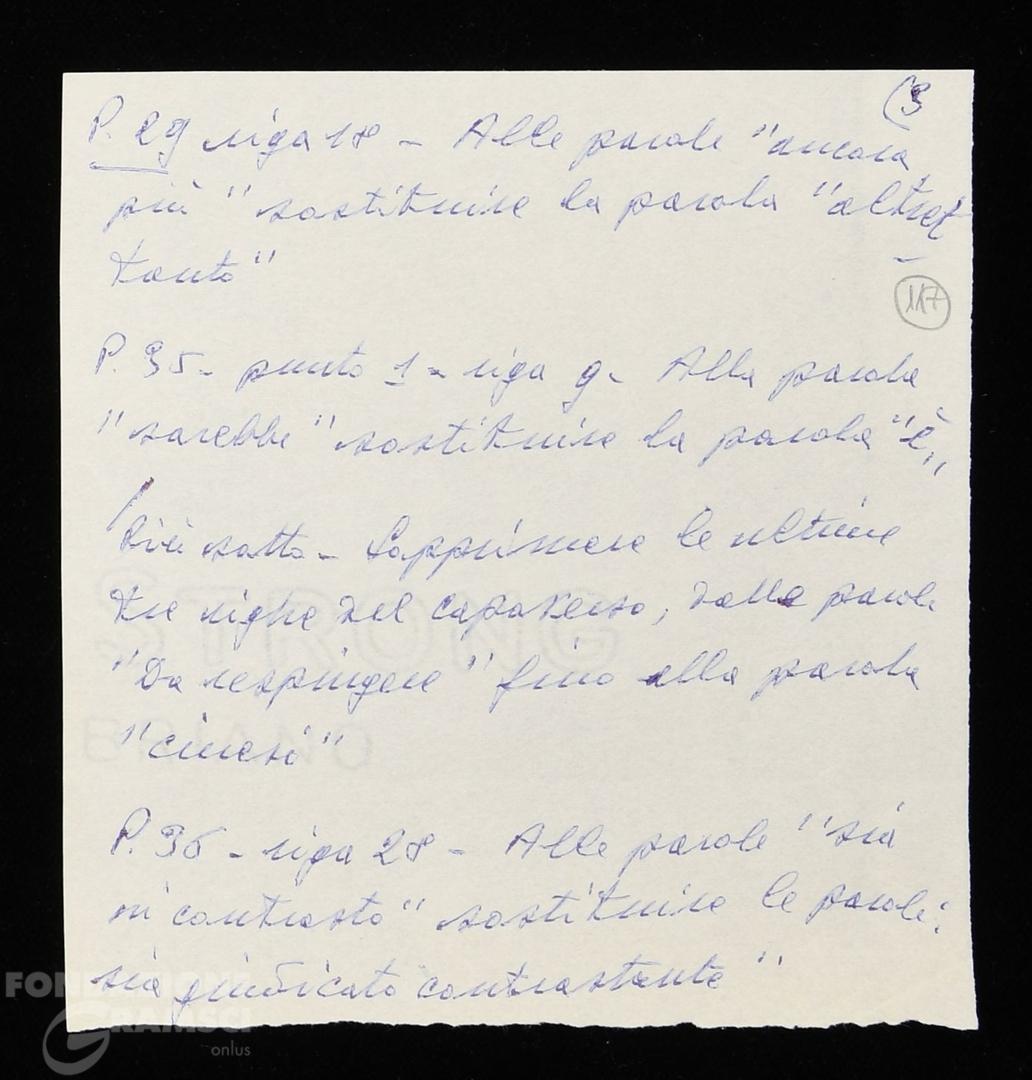 (3
P. 29 riga 18 - Alle parole "ancora
più" sostituire la parola "altret
tanto"
117
P. 35 - punto 1 - riga 9 - Alla parola
"sarebbe" sostituire la parola "è"
Più sotto - Sopprimere le ultime
tre righe del capoverso, dalle parole
"Da respingere" fino alla parola
"cinesi"
P. 36 - riga 28 - Alle parole "sia
in contrasto" sostituire le parole:
sia giudicato contrastante"
STRONG
FONDAZIONE
GRAMSCI
onlus